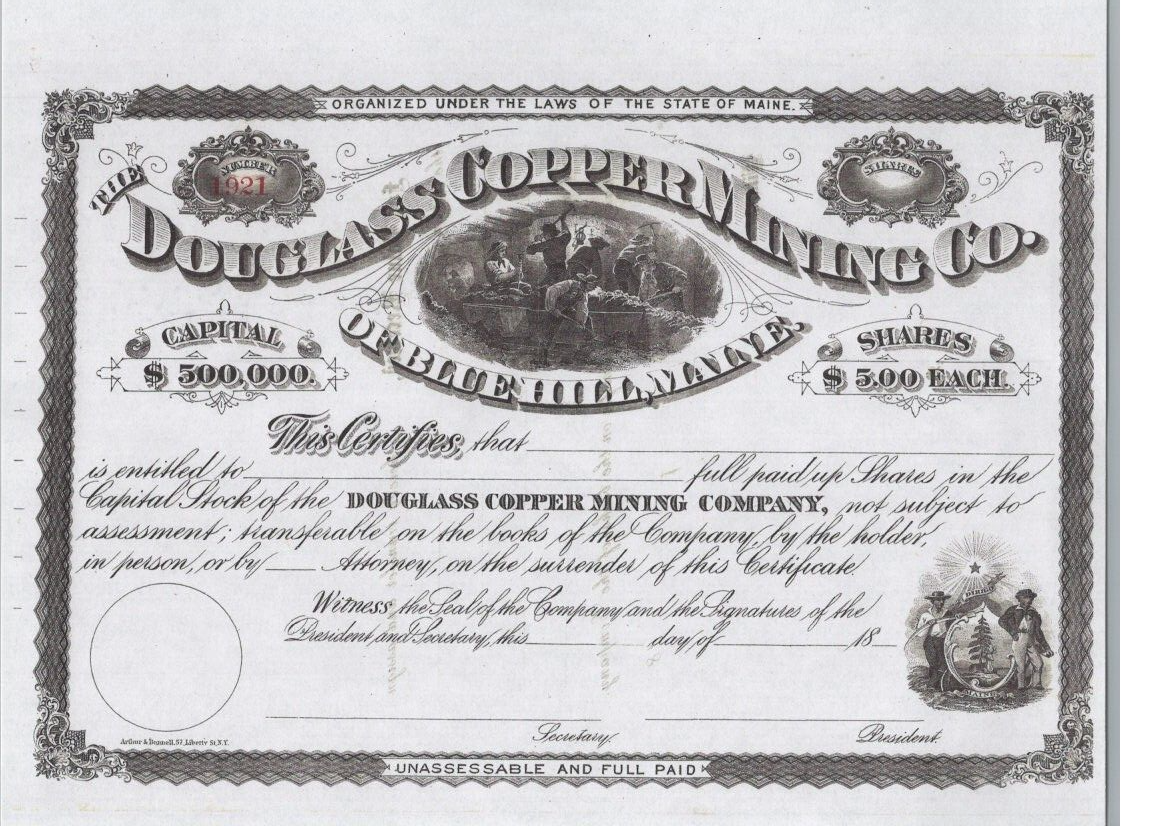 ORGANIZED UNDER THE LAWS OF THE STATE OF MAINE.
NUMBER
1921
SHARES
THE
DOUGLASS COPPER MINING CO.
OF BLUE HILL, MAINE.
CAPITAL
$ 500,000.
SHARES
$ 5.00 EACH.
This Certifies, that
is entitled to full paid up Shares in the
Capital Stock of the DOUGLASS COPPER MINING COMPANY, not subject to
assessment; transferable on the books of the Company, by the holder,
in person, or by Attorney, on the surrender of this Certificate.
Witness the Seal of the Company and the Signatures of the
President and Secretary, this day of 18
DIRIGO
MAINE
Secretary.
President.
Arthur & Bonnell, 57 Liberty St. N.Y.
UNASSESSABLE AND FULL PAID